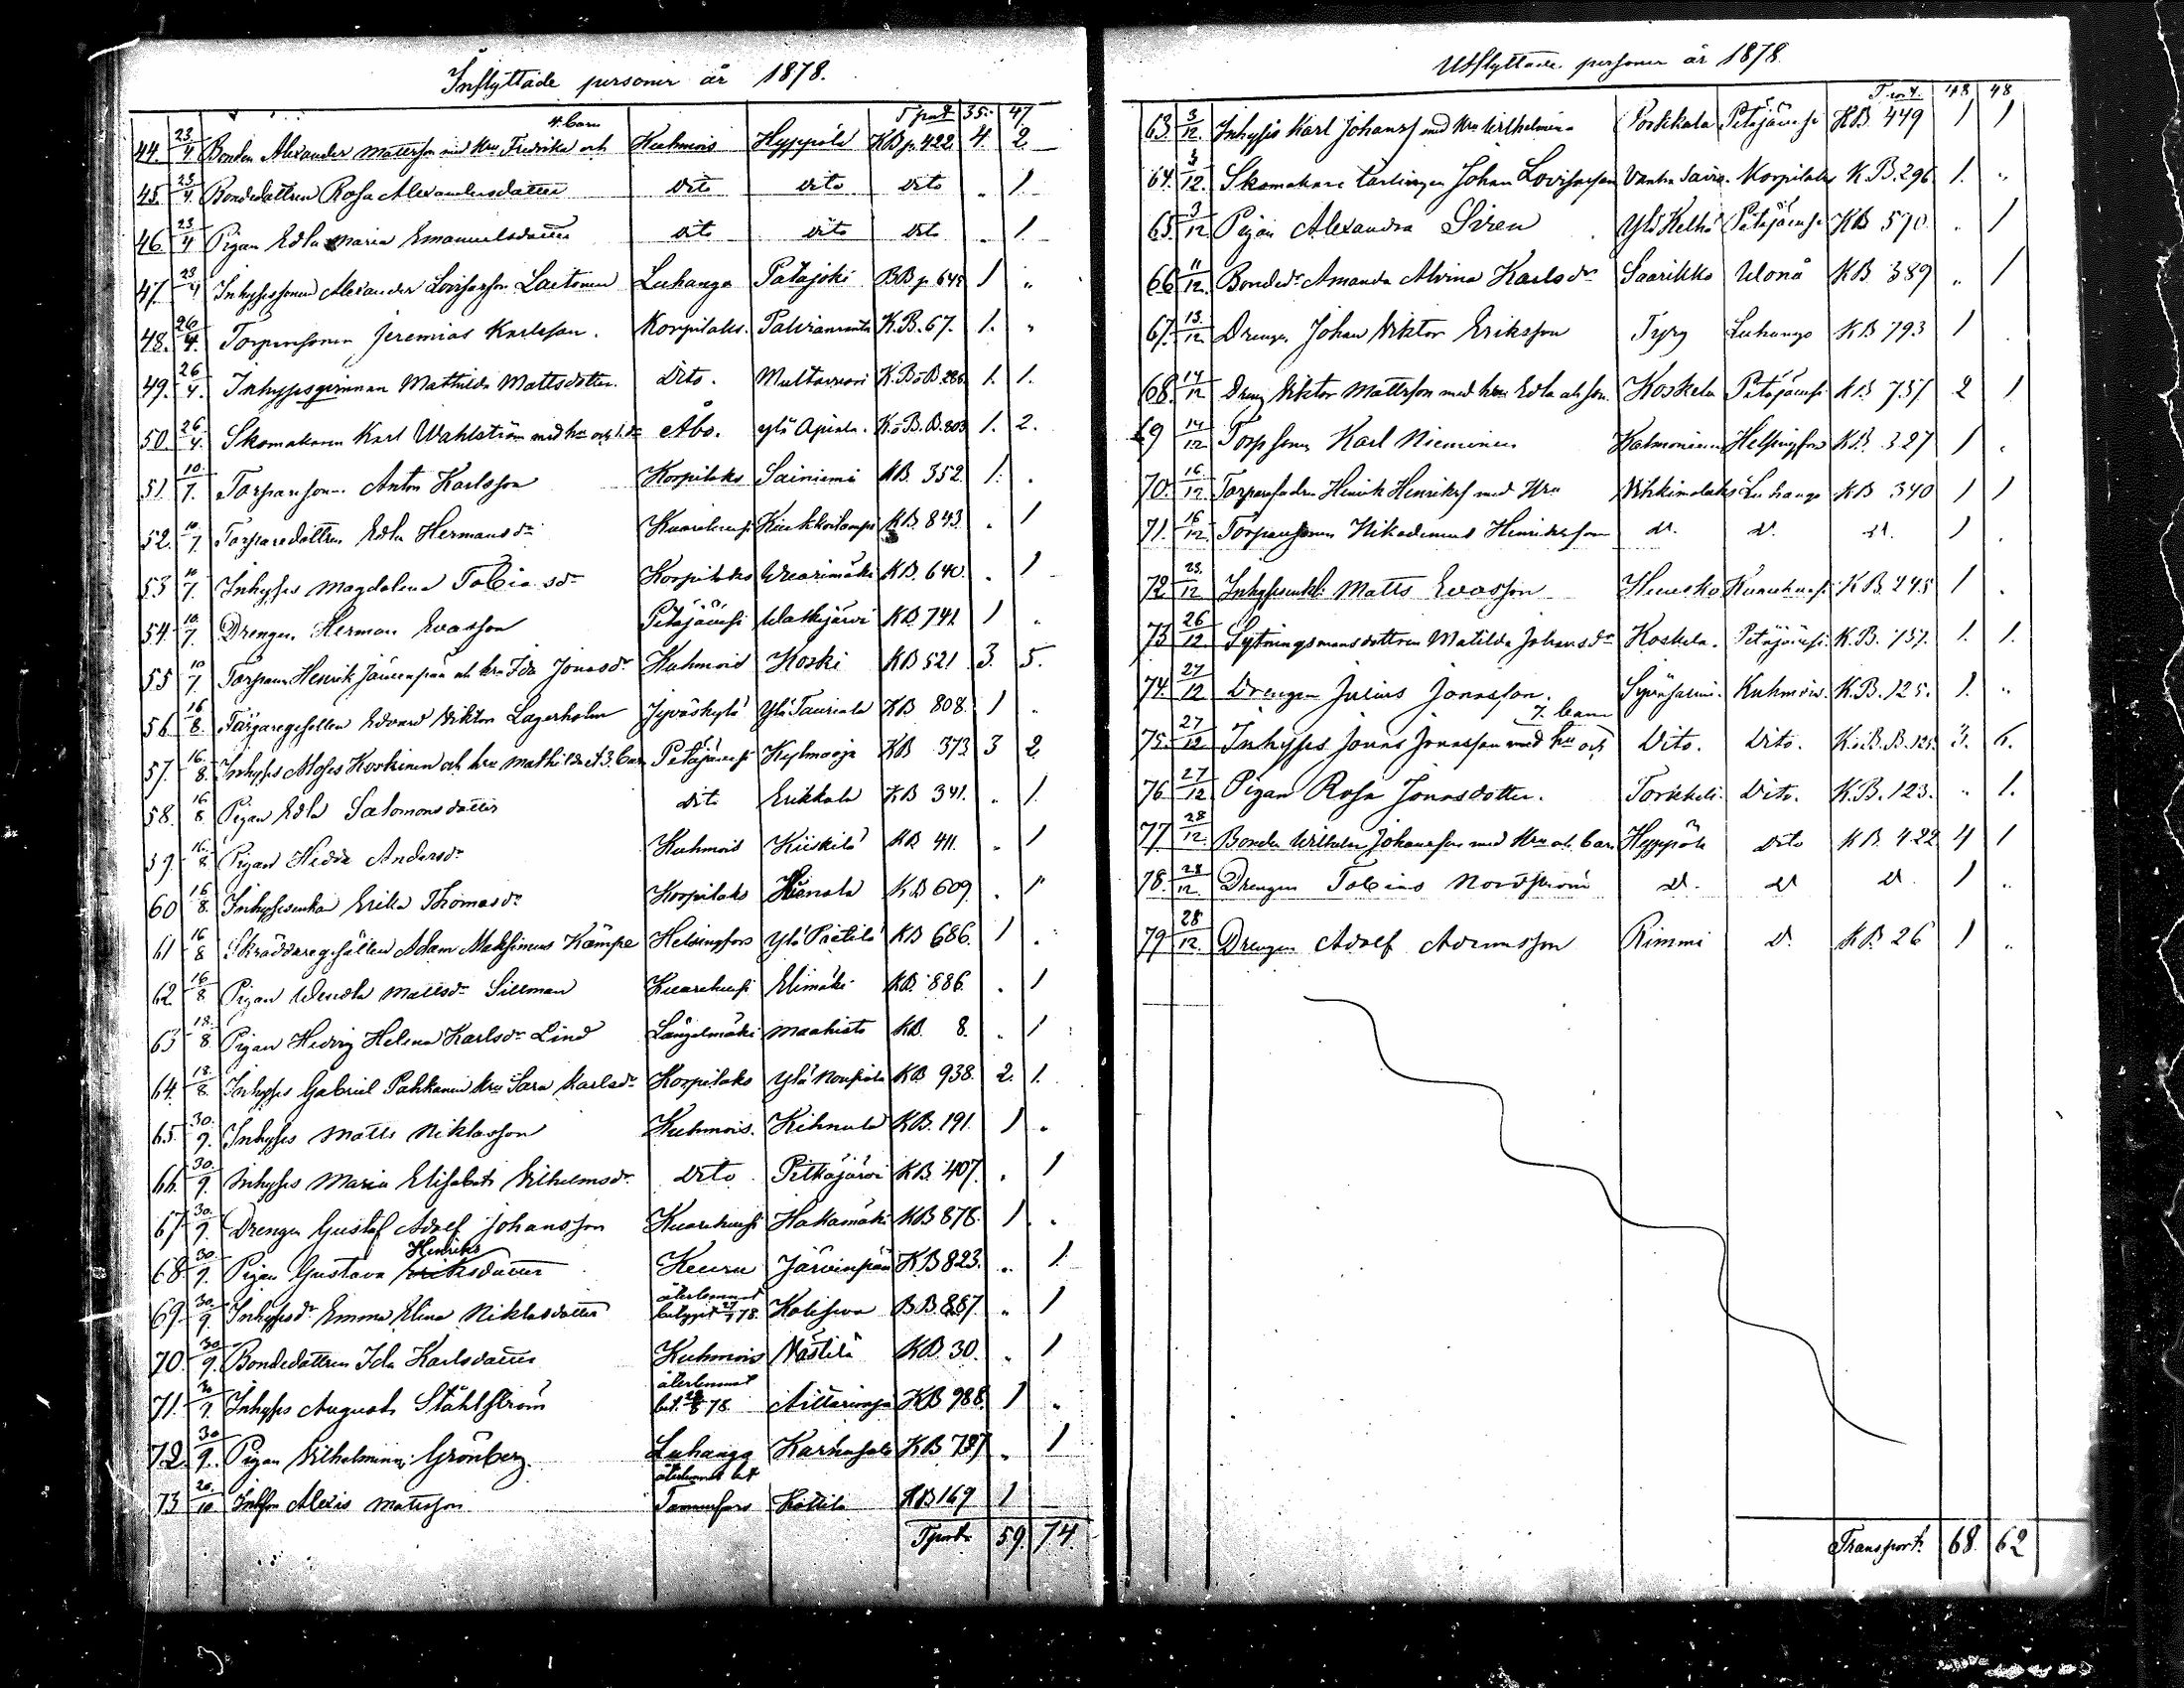 Inflyttade personer år 1878.
Tprt 35. 47.
44. 23/4 Bonden Alexander Mattsson med hu Fredrika och 4. barn Kuhmois Hyppölä KB p. 422. 4. 2
45. 23/4. Bondedattren Rosa Alexandersdatter dito dito dito „ 1.
46 23/4 Pigan Edla Maria Emanuelsdatter dito dito dito „ 1.
47. 23/4 Inhysessonen Alexander Lovisasson Laitonen Luhanga Patajoki BB p 648 1 „
48. 26/4. Torparesonen Jeremias Karlsson. Korpilaks. K.B. 67. 1. „
49. 26/4. Mathilda Mattsdotter. Dito. K.B o B. 286 1. 1.
50. 26/4. Skomakaren Karl Wahlström med hu och 1. dr Åbo. ylä Apiala. K o B. B. 803 1. 2.
51. 10/7. Torparesonen Anton Karlsson Korpilaks Sainiemi KB. 352. 1. .
52. 10/7. Torparedottren Edla Hermansdr Kuorehvesi KB. 843. . 1
53 10/7. Inhyses Magdalena Tobiasdr Korpilaks Wuorimäki KB. 640. . 1
54. 10/7. Drengen Herman Evasson Petäjävesi Watkijärvi KB. 741. 1 „
55 10/7. Torparen Henrik Järvenpää och hu Ida Jonasdr Kuhmois Koski KB 521. 3. 5.
56. 16/8. Färgaregesällen Edvard Viktor Lagerholm Jyväskylä Ylä Tauriala KB 808. 1 „
57. 16/8. Inhyses Moses Koskinen och hu Mathilda o 3. barn Petäjävesi Kylmäoja KB 373 3 2
58. 16/8. Pigan Edla Salomonsdatter dito Erikkala KB 341. . 1.
59. 16/8 Pigan Hedda Andersdr Kuhmois Kiiskilä KB 411. „ 1
60 16/8. Inhysesenkan Erika Thomasdr Korpilaks KB 609. . 1
61 16/8 Skräddaregesällen Adam Maksimus Kämpe Helsingfors Ylä Paetilä KB 686. 1 .
62 16/8 Pigan Wendla Mattsdr Sillman Kuorehvesi Elimäki KB. 886. . 1
63 18/8 Pigan Hedvig Helena Karlsdr Lind Längelmäki Maahisto KB. 8. „ 1
64. 18/8. Inhyses Gabriel Pahkanen hu Sara Karlsdr Korpilaks KB. 938. 2. 1.
65. 30/9. Inhyses Matts Niklasson Kuhmois. Kihnula KB. 191. 1 .
66. 30/9. Inhyses Maria Elisabet Vilhelmsdr Dito Pitkäjärvi KB. 407. . 1
67 30/9. Drengen Gustaf Adolf Johansson Kuorehvesi Hakamäki KB 878. 1 .
68. 30/9. Pigan Gustava Henriks Eriksdatter Keuru Järvenpää KB 823. „ 1.
69. 30/9. Inhysesdr Emma Elina Niklasdatter återlemnat betyget 27/7 78. B.B. 887. „ 1
70. 30/9. Bondedattren Ida Karlsdatter Kuhmois Västilä KB. 30. „ 1
71. 30/9. Inhyses August Ståhlström återlemnat bet. 28/8 78. KB 988. 1 „
72. 30/9. Pigan Vilhelmina Grönberg. Luhanga Karhusalo KB 787. „ 1
73 20/10 Inhson Alexis Mattsson återlemnat bet Tammerfors Kottila KB 169 1
Tprt. 59. 74.
Utflyttade personer år 1878.
T prt. 48 48
63. 3/12. Inhyses Karl Johanss med hu Wilhelmina Porkkala Petäjävesi KB. 449 1 1
64. 3/12. Skomakare lärlingen Johan Lovisasson Korpilaks K.B. 296. 1. „
65. 3/12 Pigan Alexandra Siren Petäjävesi KB 570. „ 1
66 11/12. Bondedr Amanda Alvina Karlsdr Saarikko KB 389 „ 1
67. 13./12 Drengen Johan Viktor Eriksson Tyry Luhango KB 793 1 .
68. 14/12 Dreng Viktor Mattsson med hu Edla ch son. Koskela Petäjävesi KB 757 2 1
69 14/12 Torpsonen Karl Nieminen Helsingfors KB. 327 1 „
70. 16./12 Torparefadren Henrik Henrikss med Hu Luhango KB 340 1 1
71. 16/12. Torparesonen Nikodemus Henriksson d. d. d. 1 .
72 23./12 Inhysesenkl. Matts Evasson Kuorehvesi KB. 245 1 .
73 26/12 Sytningsmansdottren Matilda Johansdr Koskela. Petäjävesi K.B. 757. 1. 1.
74. 27/12 Drengen Julius Jonasson. Kuhmois. K.B. 125. 1. „
75. 27/12 Inhyses Jonas Jonasson med hu och 7. barn Dito. Dito. K o B. B. 125. 3. 6.
76. 27/12. Pigan Rosa Jonasdotter. Torikkeli. Dito. K.B. 123. „ 1.
77 28/12. Bonden Wilhelm Johansson med Hu och barn Hyppölä dito KB. 422 4 1
78. 28/12. Drengen Tobias Nordström d. d d. 1 „
79 28/12. Drengen Adolf Adamsson Rimmi d. KB. 26 1 „
Transport. 68. 62